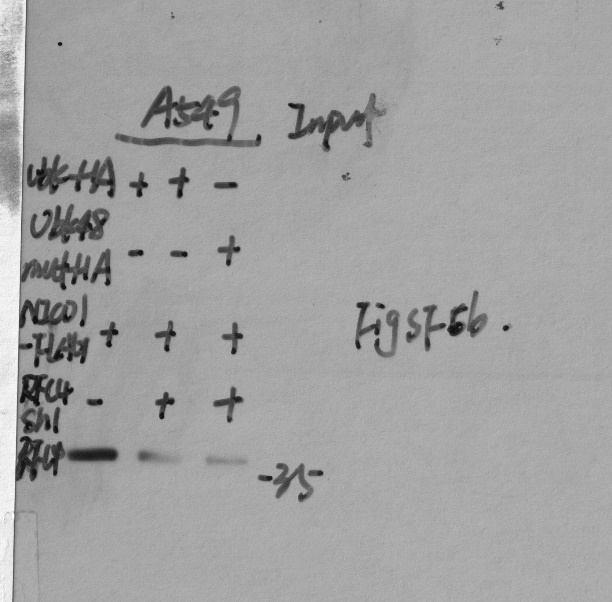 A549 Input
Ubk-HA + + -
Ubk48
mut-HA - - +
NICD1
-Flag + + +
RFC4
Sh1 - + +
RFC4
-35-